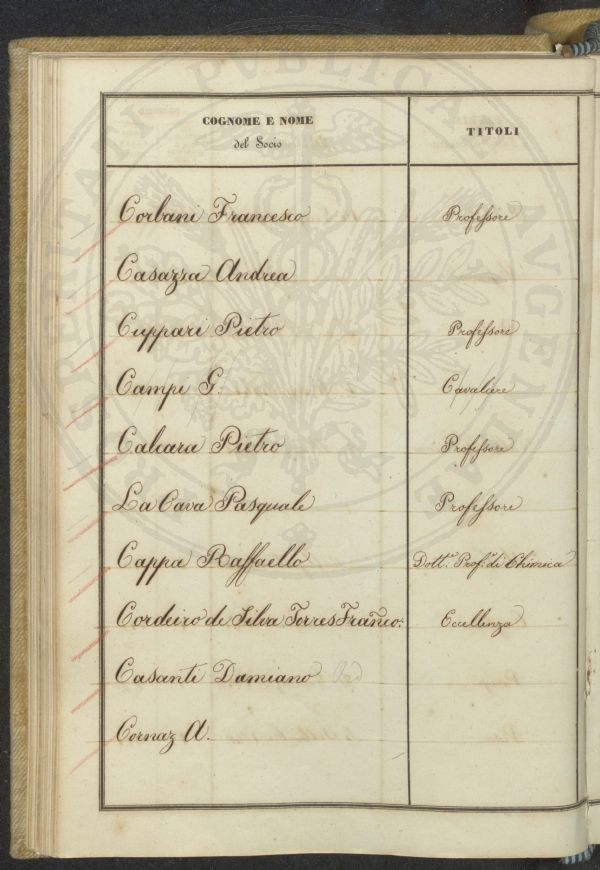 COGNOME E NOME
del Socio
TITOLI
Corbani Francesco Professore
Casazza Andrea
Cuppari Pietro Professore
Campi G. Cavaliere
Calcara Pietro Professore
La Cava Pasquale Professore
Cappa Raffaello Dott.e Prof.e di Chimica
Cordeiro de Silva Torres Franco. Eccellenza
Casanti Damiano
Cornaz A.